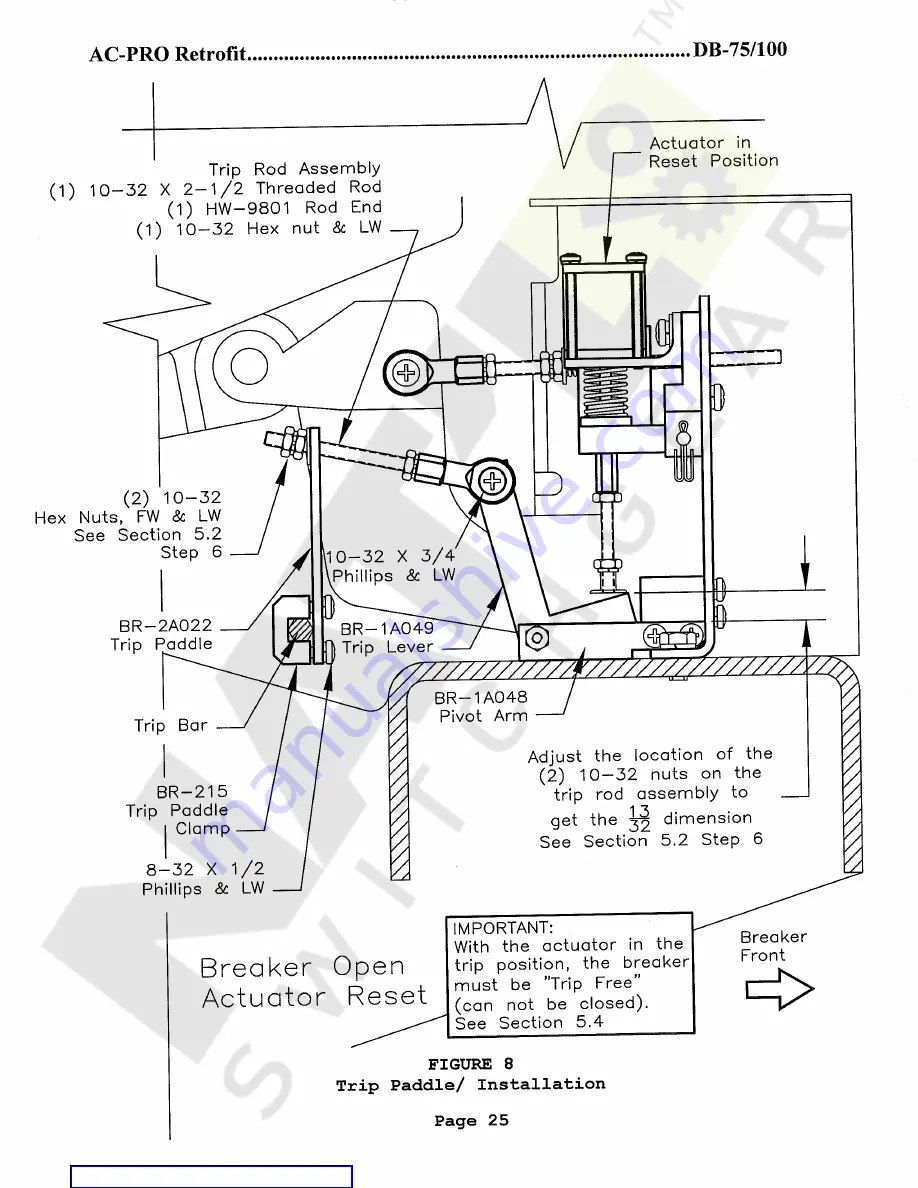 AC-PRO Retrofit....................................................................................DB-75/100
TM
Actuator in
Reset Position
Trip Rod Assembly
(1) 10-32 X 2-1/2 Threaded Rod
(1) HW-9801 Rod End
(1) 10-32 Hex nut & LW
(2) 10-32
Hex Nuts, FW & LW
See Section 5.2
Step 6
10-32 X 3/4
Phillips & LW
BR-2A022
Trip Paddle
BR-1A049
Trip Lever
BR-1A048
Pivot Arm
Trip Bar
Adjust the location of the
(2) 10-32 nuts on the
trip rod assembly to
get the 13/32 dimension
See Section 5.2 Step 6
BR-215
Trip Paddle
Clamp
8-32 X 1/2
Phillips & LW
IMPORTANT:
With the actuator in the
trip position, the breaker
must be "Trip Free"
(can not be closed).
See Section 5.4
Breaker
Front
Breaker Open
Actuator Reset
FIGURE 8
Trip Paddle/ Installation
Page 25
manualshive.com
SWITCHGEAR